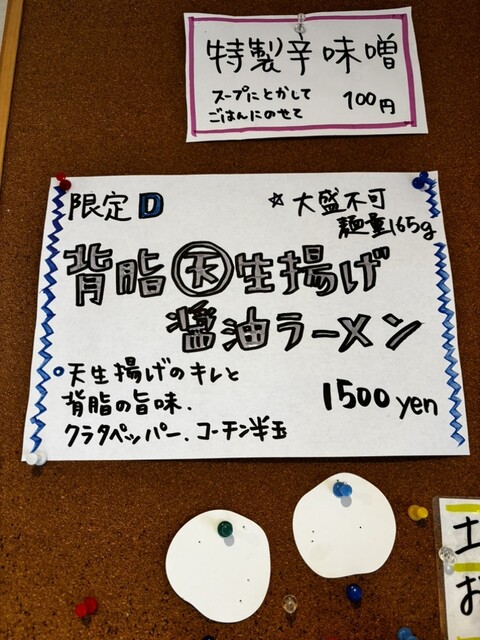 特製辛味噌
スープにとかして
ごはんにのせて
100円
限定D
☆大盛不可
麺量165g
背脂㊝生揚げ
醤油ラーメン
天生揚げのキレと
背脂の旨味、
クラタペッパー、コーチン半玉
1500yen
土
お